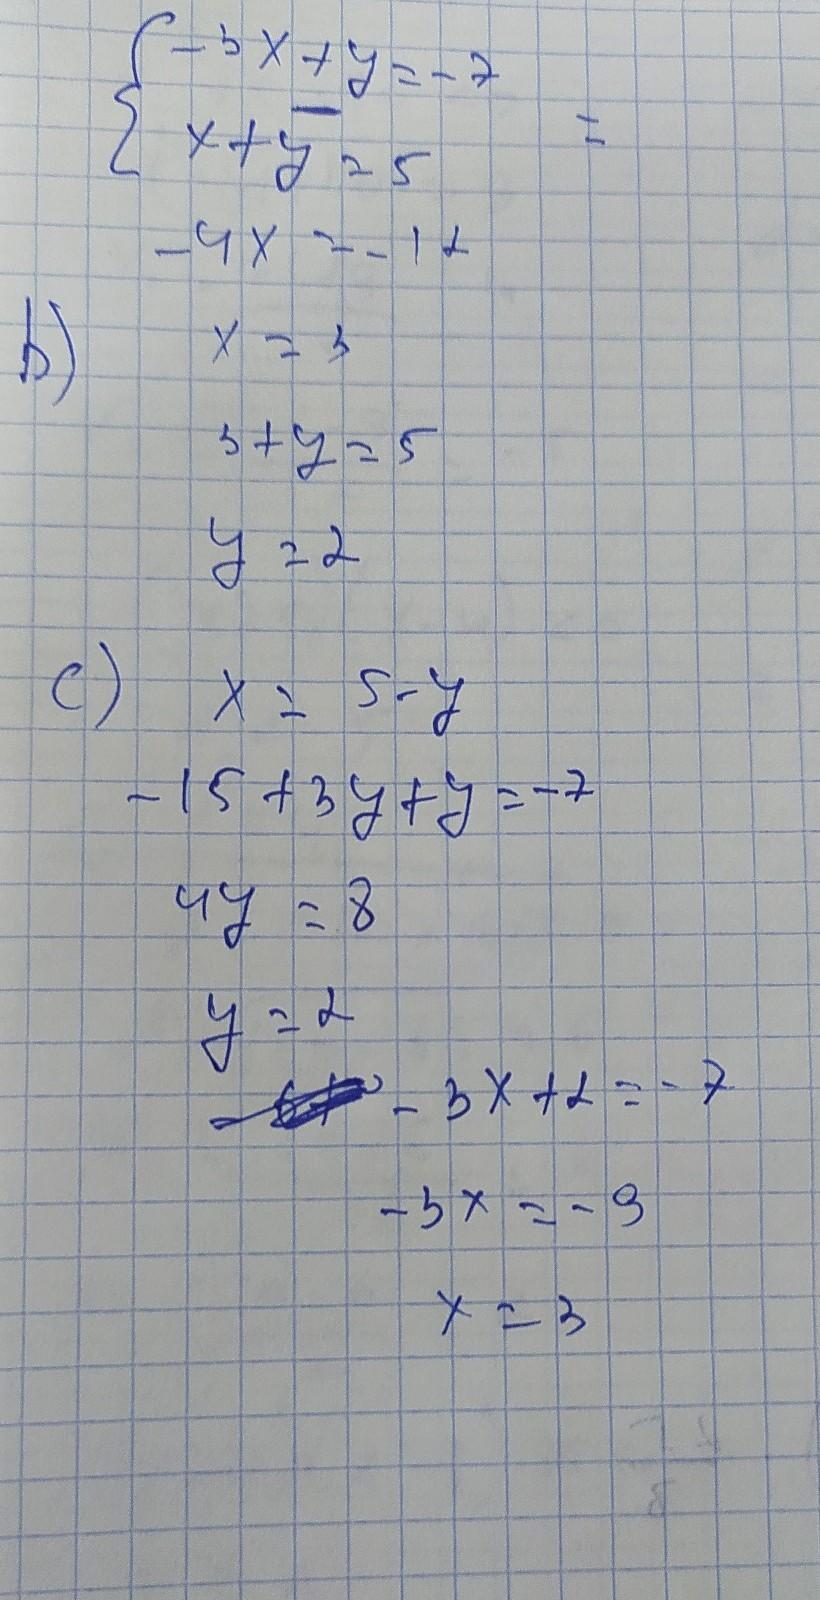 {-3x+y=-7
x+y=5 =
-4x=-12
b) x=3
3+y=5
y=2
c) x=5-y
-15+3y+y=-7
4y=8
y=2
-3x+2=-7
-3x=-9
x=3